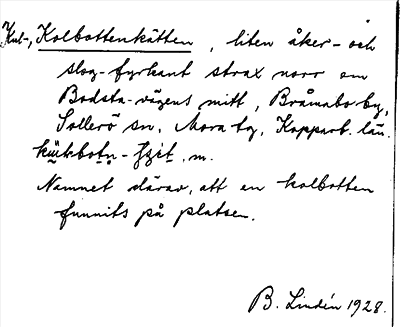 Kul-, Kolbottenkätten, liten åker- och
slog-fyrkant strax norr om
Bodsta-vägens mitt, Bråmabo by,
Sollerö sn. Mora tg, Kopparb. län.
Namnet därav, att en kolbotten
funnits på platsen.
B. Lindén 1928.